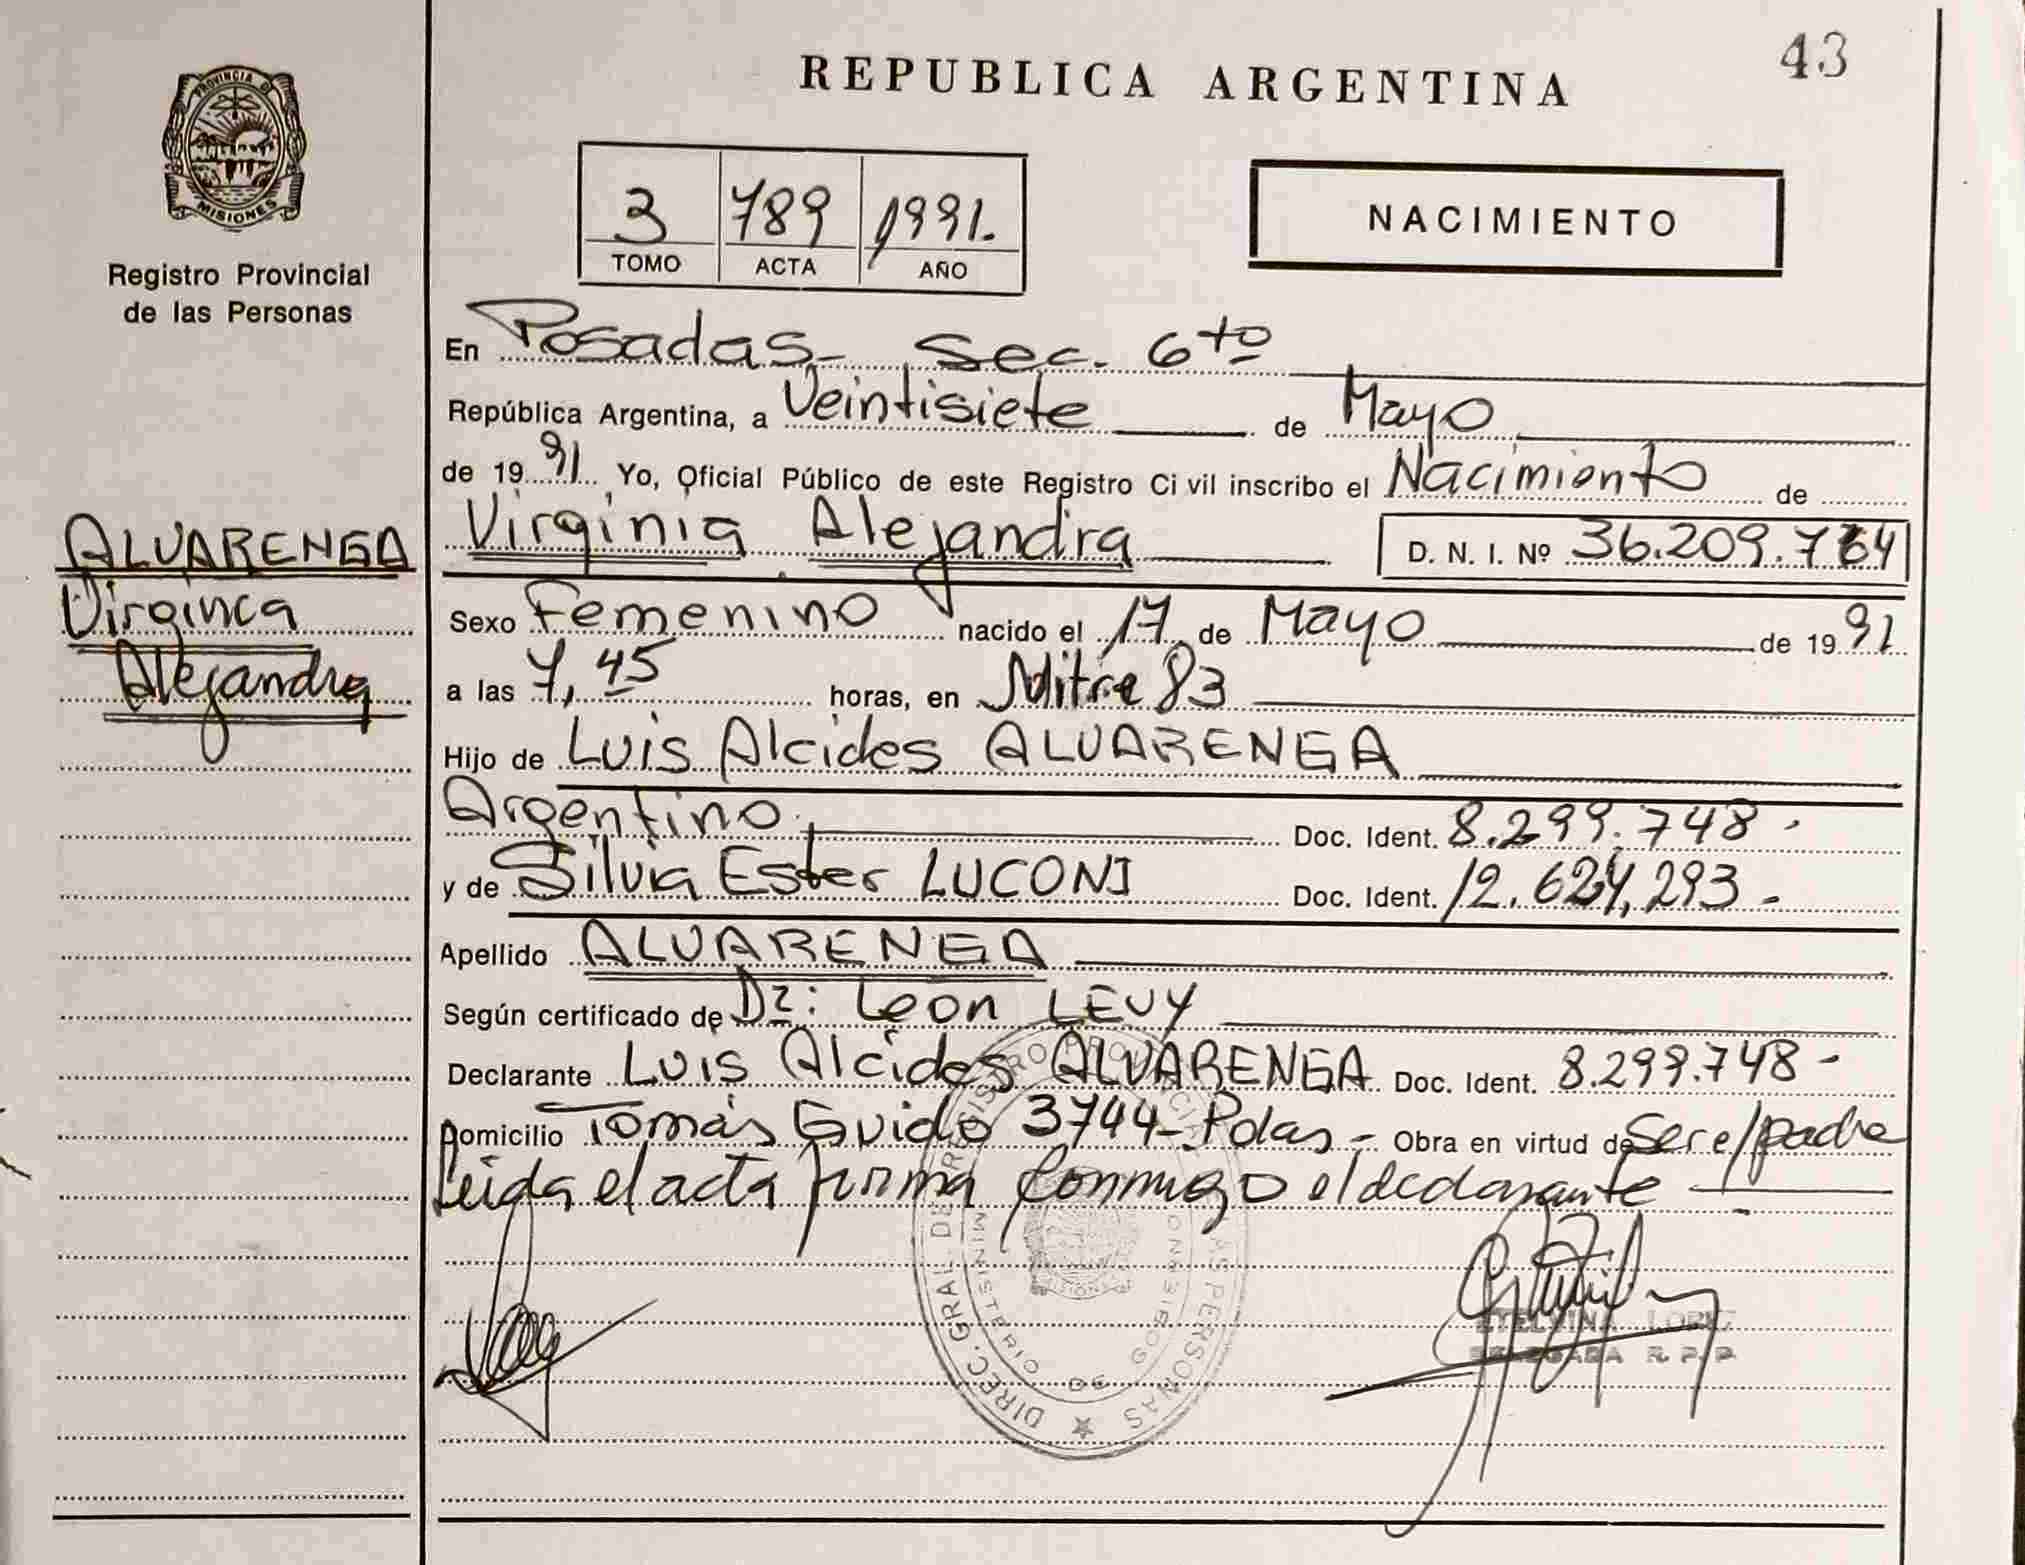 43
REPUBLICA ARGENTINA
PROVINCIA DE
MISIONES
Registro Provincial
de las Personas
3 789 1991.
TOMO ACTA AÑO
NACIMIENTO
En Posadas - Sec. 6to
República Argentina, a Veintisiete de Mayo
de 1991 Yo, Oficial Público de este Registro Civil inscribo el Nacimiento de
ALVARENGA
Virginia
Alejandra
Virginia Alejandra D. N. I. Nº 36.209.764
Sexo Femenino nacido el 17 de Mayo de 1991
a las 7,45 horas, en Mitre 83
Hijo de Luis Alcides ALVARENGA
Argentino. Doc. Ident. 8.299.748-
y de Silvia Ester LUCONI Doc. Ident. 12.624,293-
Apellido ALVARENGA
Según certificado de Dr: Leon LEVY
Declarante Luis Alcides ALVARENGA Doc. Ident. 8.299.748-
Domicilio Tomás Guido 3744-Pdas,- Obra en virtud de Ser e/padre
Leida el acta firma conmigo el declarante
DIREC. GRAL. DE REGISTRO PROVINCIAL PERSONAS
MINISTERIO DE GOBIERNO
ETELVINA LOPEZ
DELEGADA R.P.P.